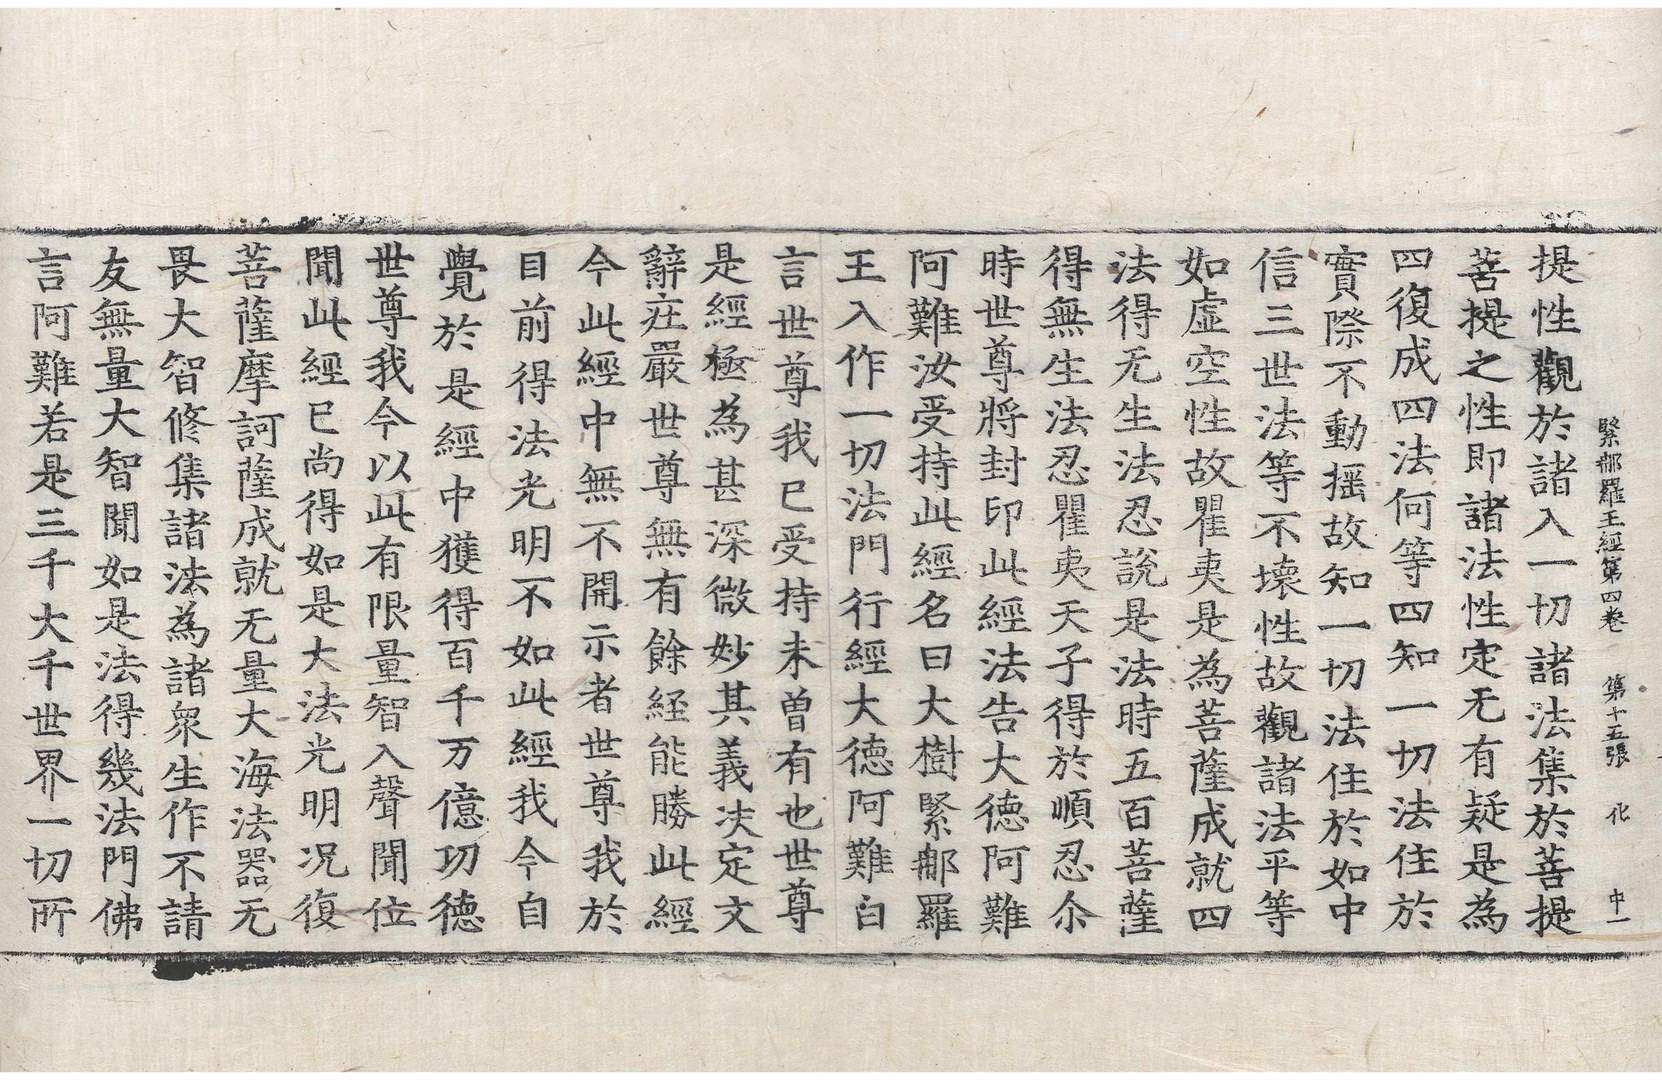 緊那羅王經第四卷 第十五張 化 中一
提性觀於諸入一切諸法集於菩提
菩提之性即諸法性定无有疑是為
四復成四法何等四知一切法住於
實際不動揺故知一切法住於如中
信三世法等不壞性故觀諸法平等
如虛空性故瞿夷是為菩薩成就四
法得无生法忍說是法時五百菩薩
得無生法忍瞿夷天子得於順忍尒
時世尊將封印此經法告大德阿難
阿難汝受持此經名曰大樹緊那羅
王入作一切法門行經大德阿難白
言世尊我已受持未曾有也世尊
是經極為甚深微妙其義决定文
辭庄嚴世尊無有餘経能勝此經
今此經中無不開示者世尊我於
目前得法光明不如此經我今自
覺於是經中獲得百千万億功德
世尊我今以此有限量智入聲聞位
聞此經已尚得如是大法光明况復
菩薩摩訶薩成就无量大海法器无
畏大智修集諸法為諸衆生作不請
友無量大智聞如是法得幾法門佛
言阿難若是三千大千世界一切所